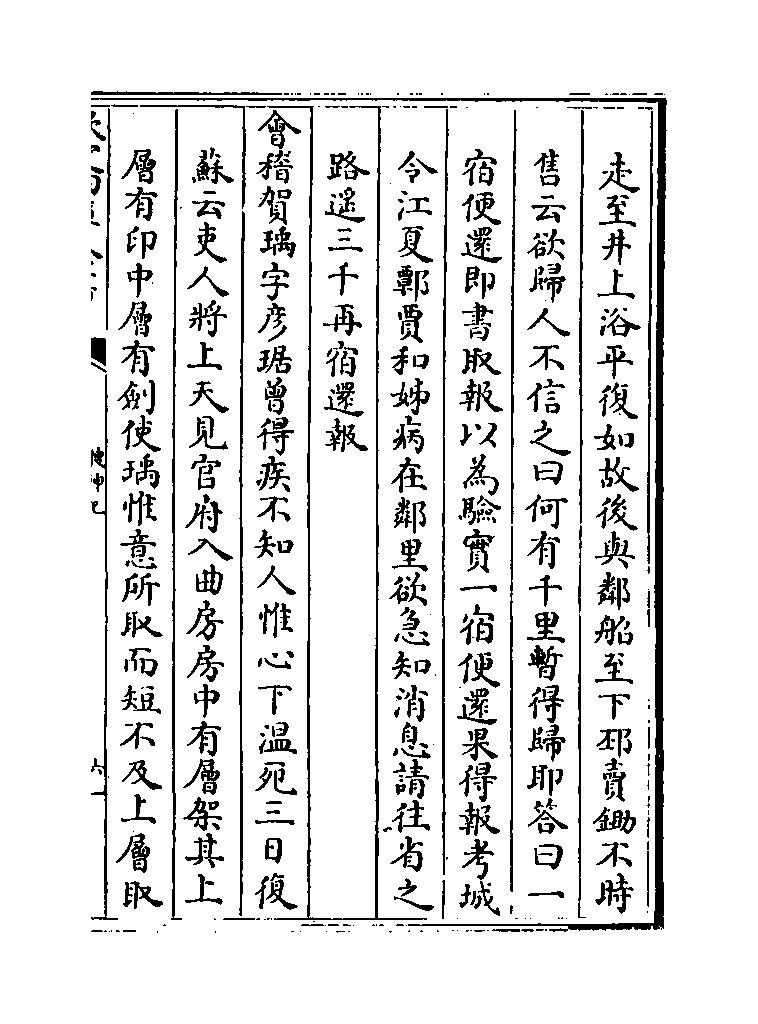 走至井上浴平復如故後與鄰船至下邳賣鋤不時
售云欲歸人不信之曰何有千里暫得歸耶答曰一
宿便還即書取報以為驗實一宿便還果得報考城
令江夏鄳賈和姊病在鄰里欲急知消息請往省之
路遥三千再宿還報
會稽賀瑀字彦琚曾得疾不知人惟心下温死三日復
蘇云吏人將上天見官府入曲房房中有層架其上
層有印中層有劍使瑀惟意所取而短不及上層取